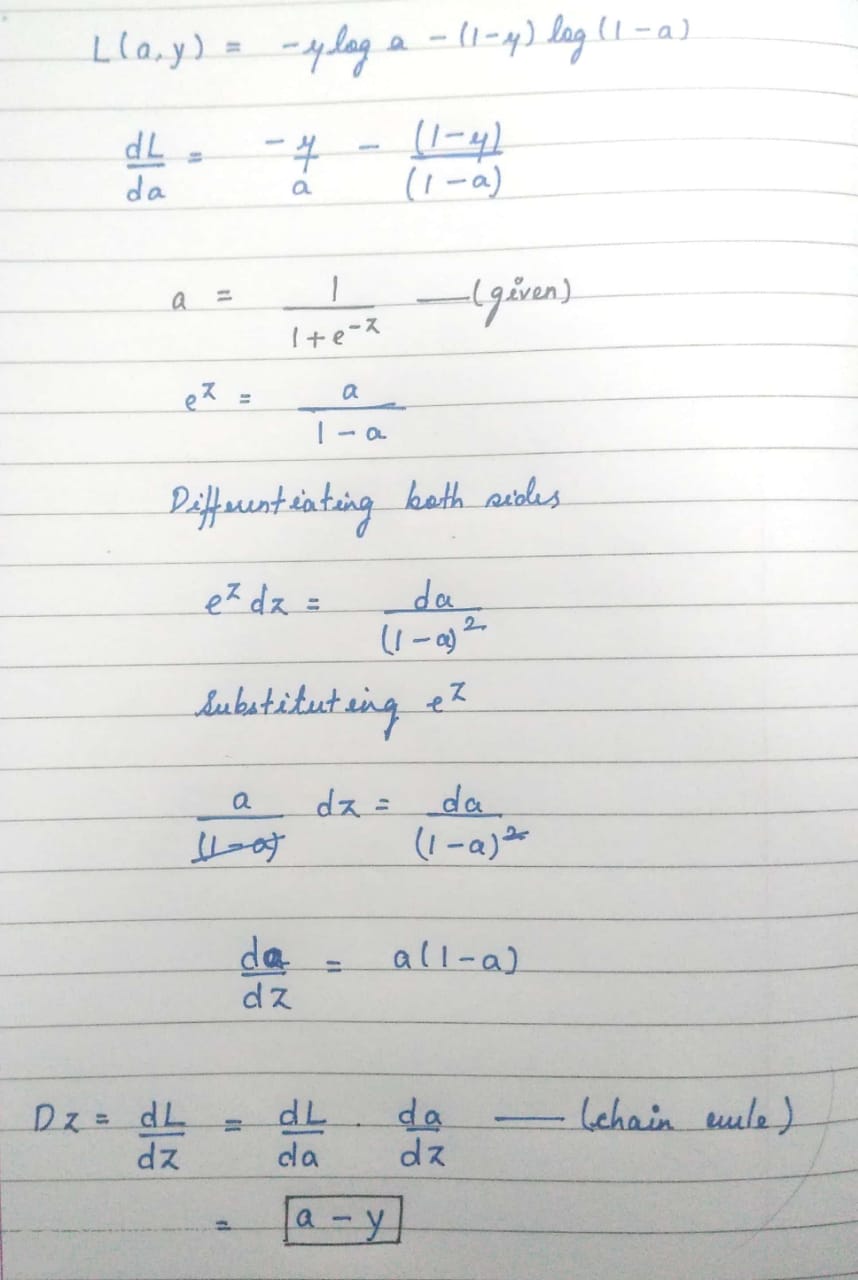 L(a,y) = -y log a - (1-y) log (1-a)
dL/da = -y/a - (1-y)/(1-a)
a = 1/(1+e^-z) —(given)
e^z = a/(1-a)
Differentiating both sides
e^z dz = da/(1-a)^2
Substituting e^z
a/(1-a) dz = da/(1-a)^2
da/dz = a(1-a)
Dz = dL/dz = dL/da . da/dz — (chain rule)
= a - y